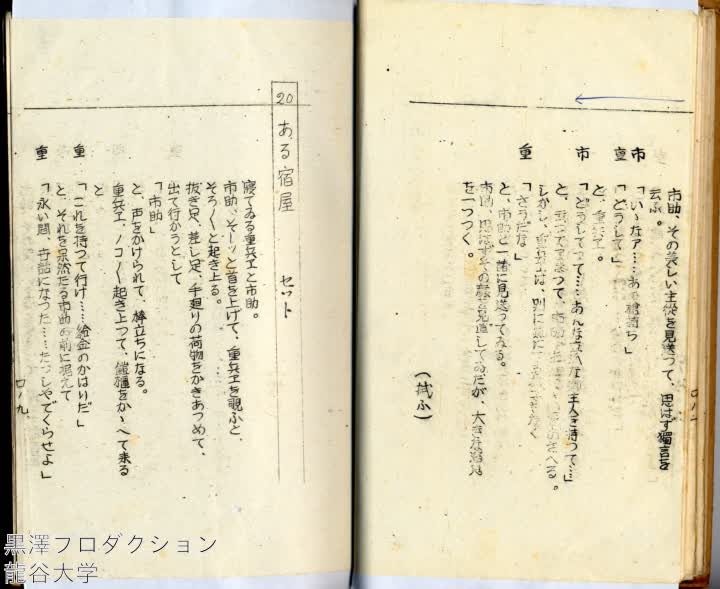 市助、その美しい主従を見送つて、思はず獨言を
云ふ。
市「いゝなァ‥‥あの槍持ち」
重「どうして」
と、重兵エ。
市「どうしてつて‥‥あんな立派な御主人を持つて‥‥」
と、云つてしまつて、市助
しかし、重兵エは、別に
重「さうだな」
と、市助と一諸に見送つてゐる。
市助、思はずその顔を見直してゐたが、大きな溜息
を一つつく。
（拭ふ）
20 ある宿屋 セット
寝てゐる重兵エと市助。
市助、そーッと首を上げて、重兵エを覗ふと、
そろ〳〵と起き上る。
抜き足、差し足、手廻りの荷物をかきあつめて、
出て行かうとして
「市助」
と、声をかけられて、棒立ちになる。
重兵エ、ノコ〳〵起き上つて、鎧櫃をかゝへて来る
と
重「これを持つて行け‥‥給金のかはりだ」
と、それを呆然たる市助の前に据えて
重「永い間、奇話になつた‥‥たつしやでくらせよ」
ロノ九
黒澤プロダクション
龍谷大学